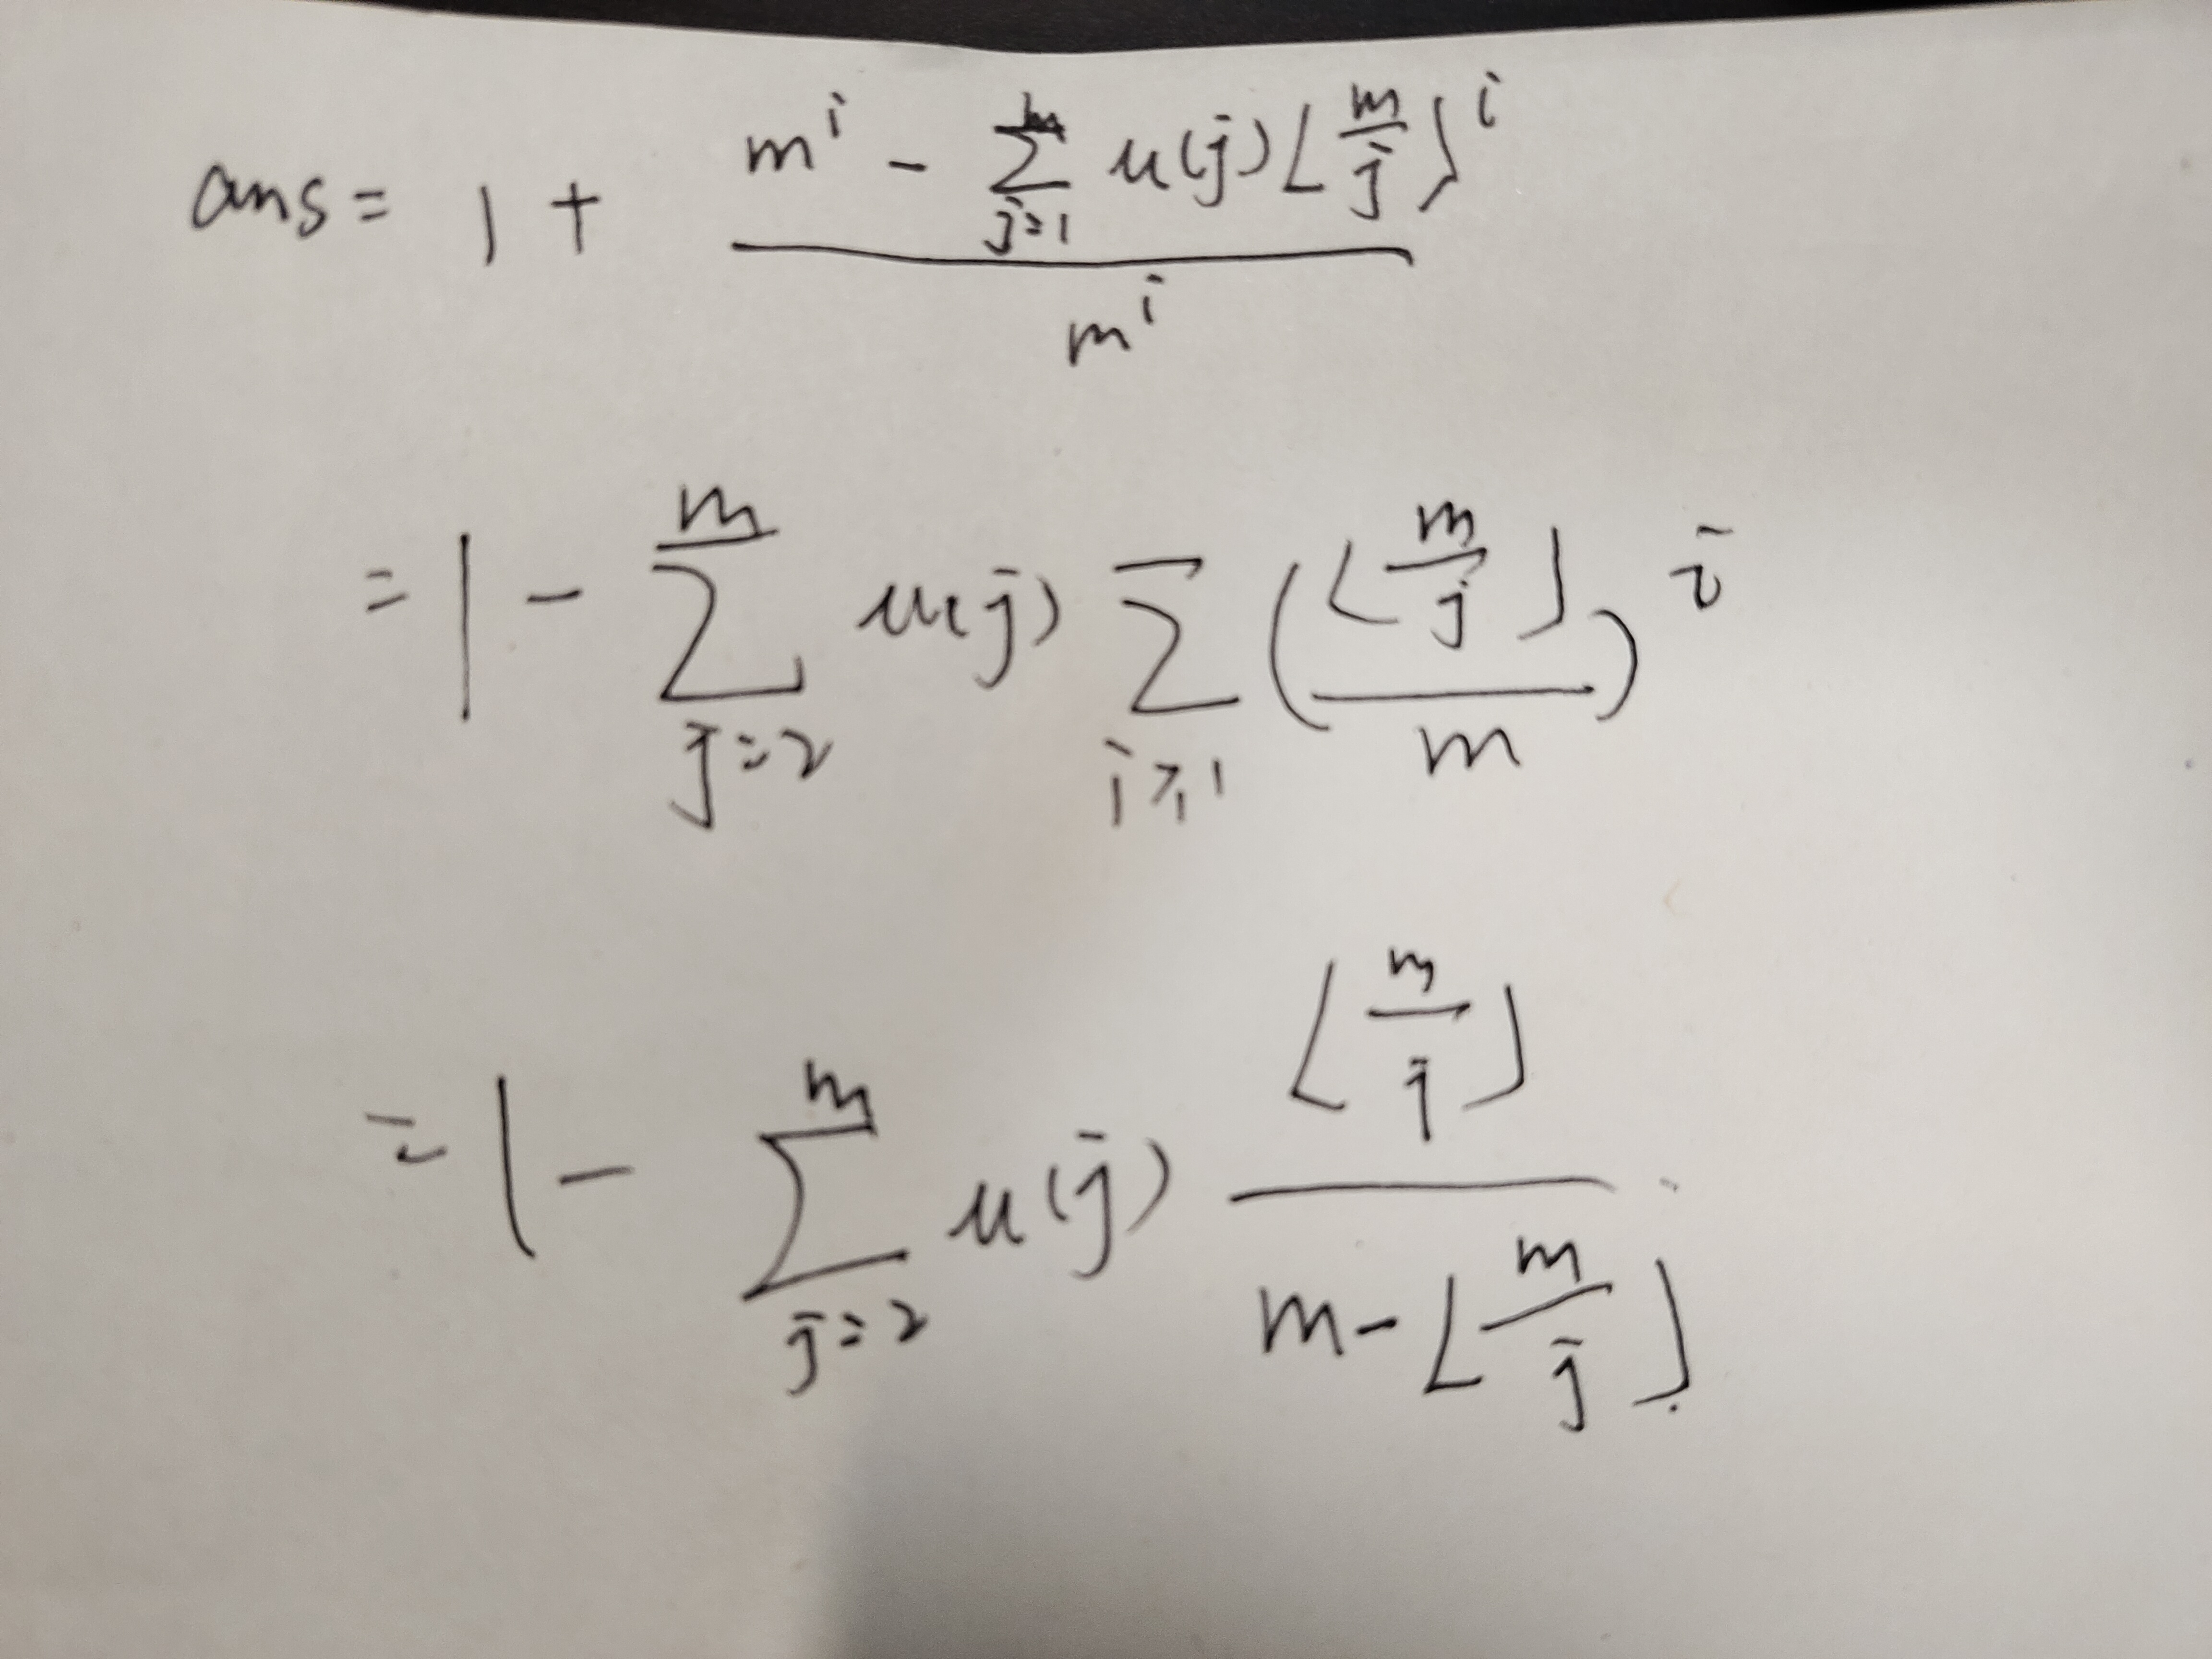 ans = 1 + \frac{m^i - \sum_{j=1}^{m} u(j) \lfloor \frac{m}{j} \rfloor^i}{m^i}
= 1 - \sum_{j=2}^{m} u(j) \sum_{i \geqslant 1} \left( \frac{\lfloor \frac{m}{j} \rfloor}{m} \right)^i
= 1 - \sum_{j=2}^{m} u(j) \frac{\lfloor \frac{m}{j} \rfloor}{m - \lfloor \frac{m}{j} \rfloor}.